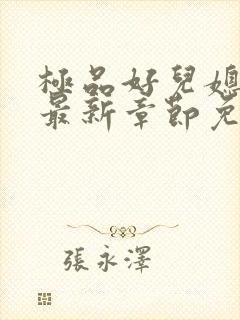 極品好兒媳
最新章節免
張永澤